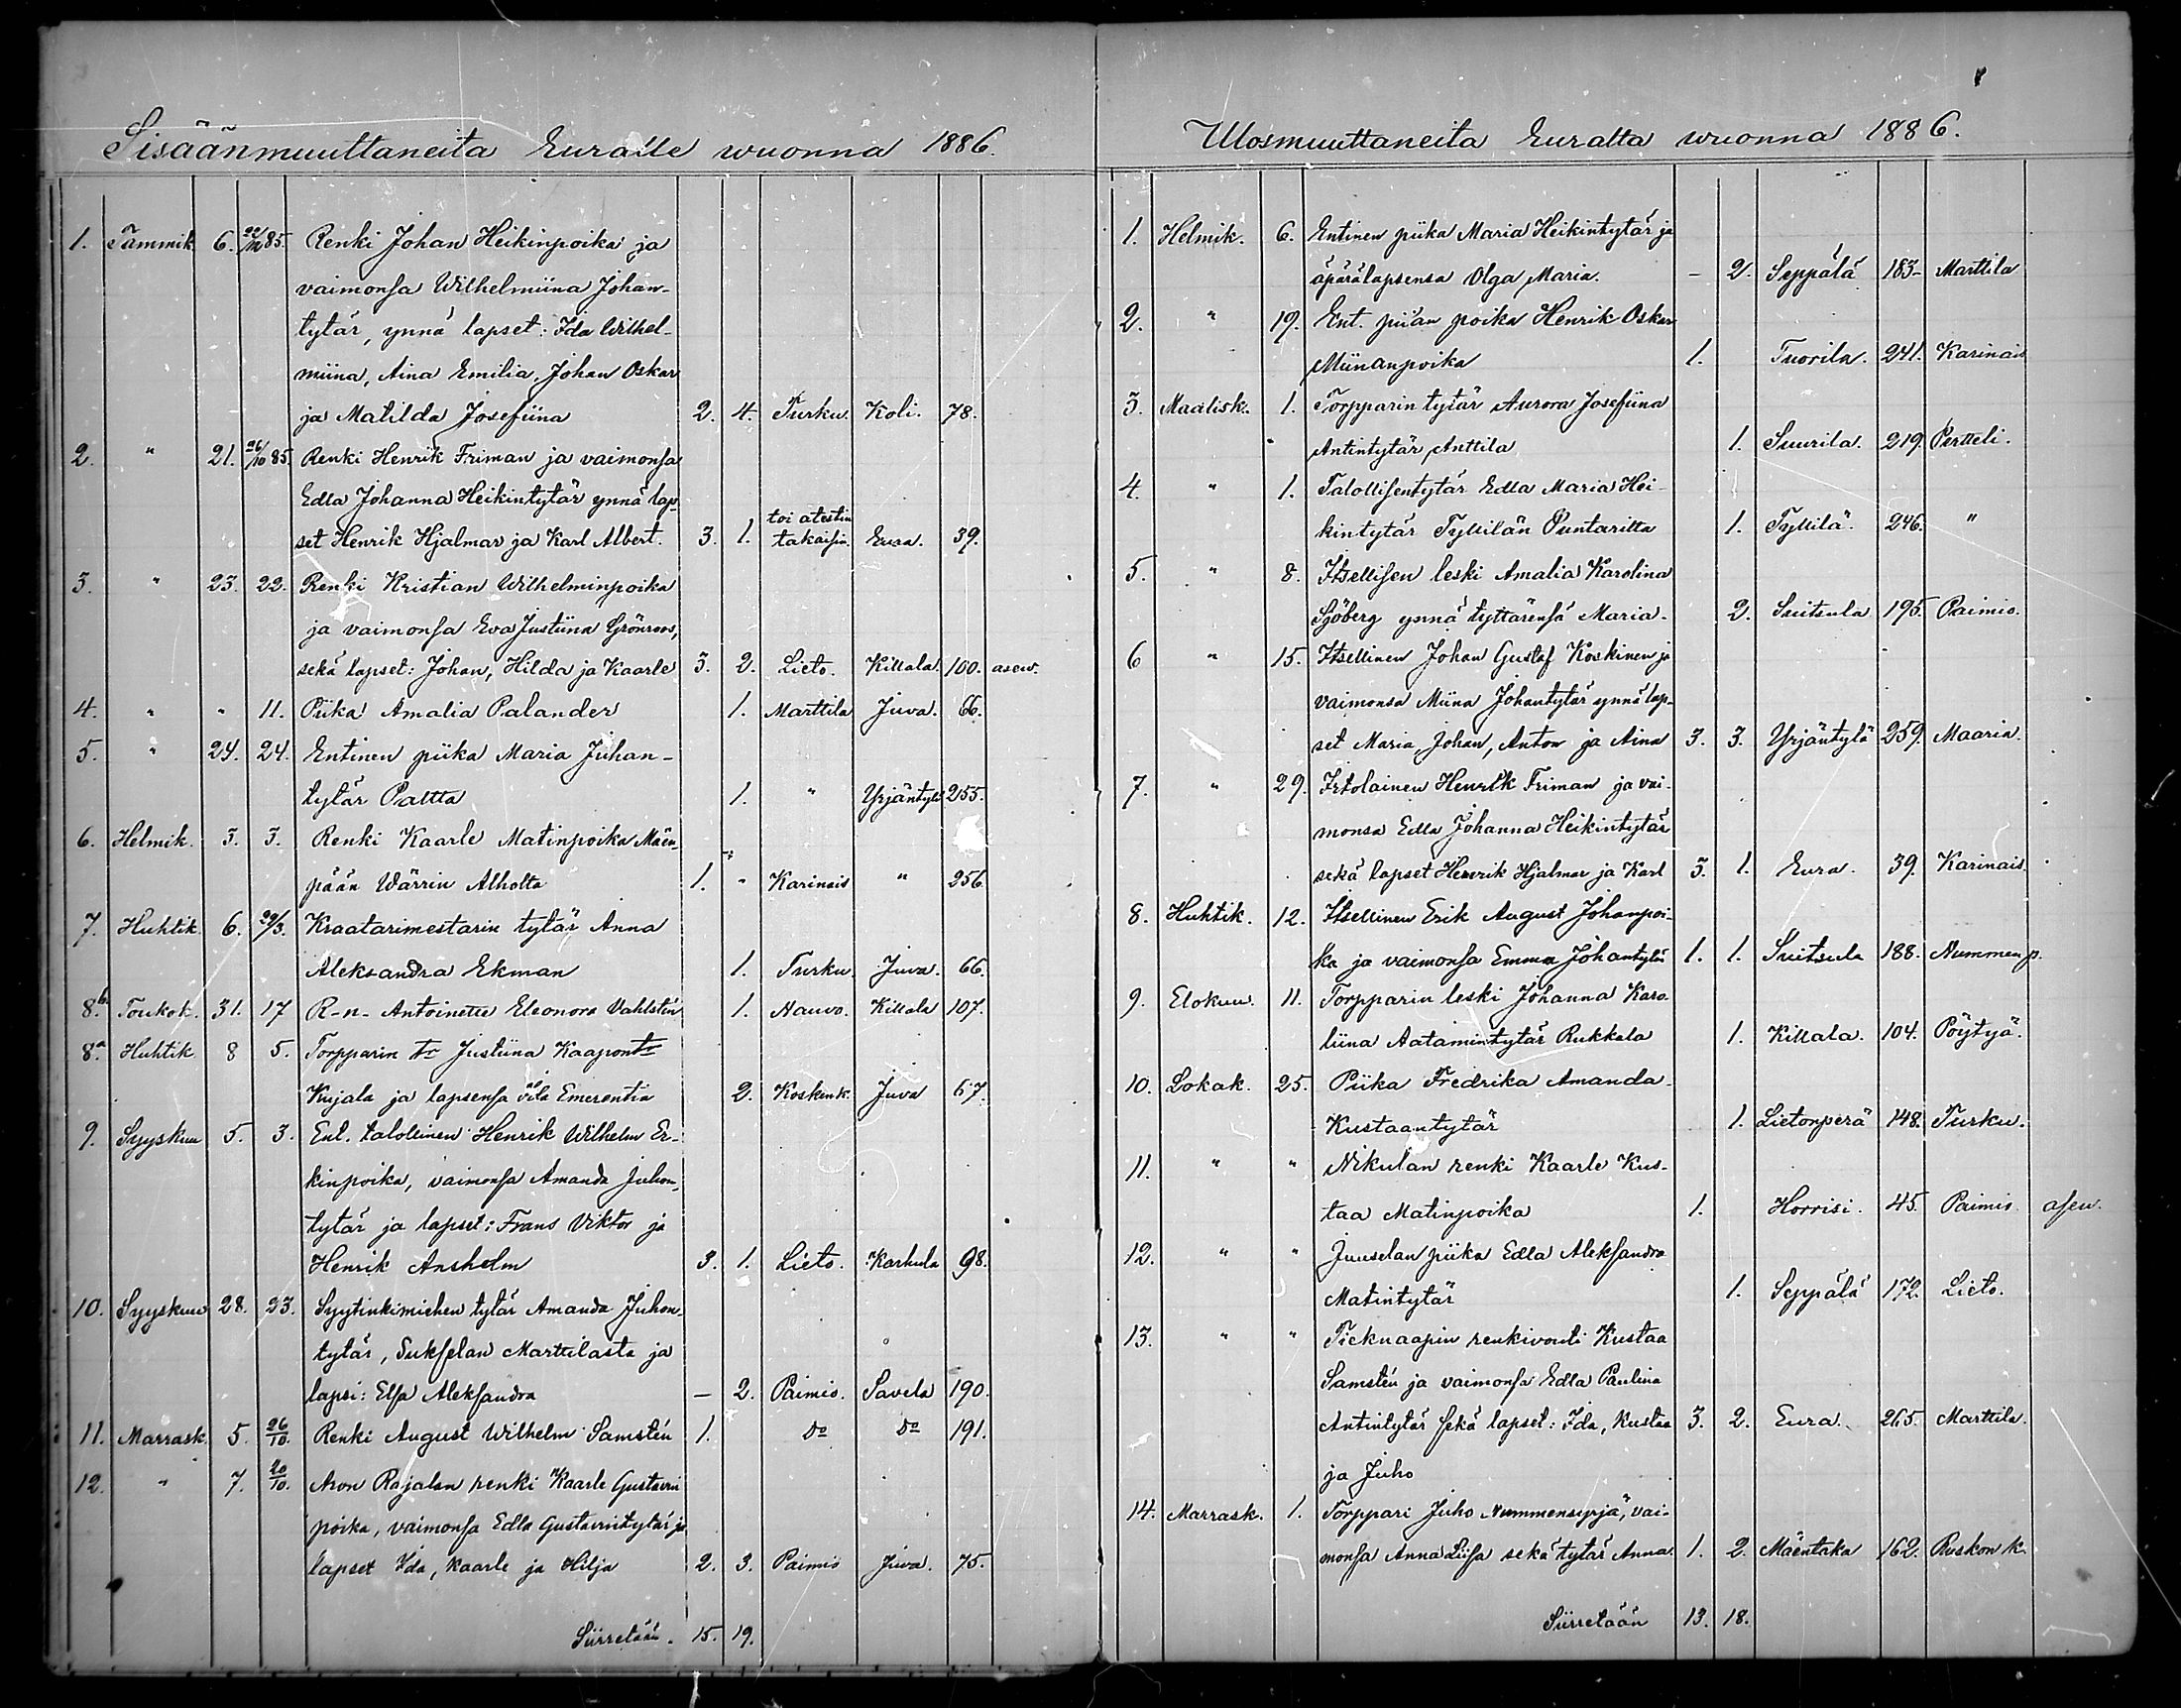 Sisäänmuuttaneita Euralle wuonna 1886.
1. Tammik. 6. 22/12 85. Renki Johan Heikinpoika ja
vaimonsa Wilhelmiina Johan-
tytär, ynnä lapset: Ida Wilhel-
miina, Aina Emilia, Johan Oskar
ja Matilda Josefiina 2. 4. Turku. Koli. 78.
2. " 21. 26/10 85. Renki Henrik Friman ja vaimonsa
Edla Johanna Heikintytär ynnä lap-
set Henrik Hjalmar ja Karl Albert. 3. 1. toi atestin takaisin. Eura. 39.
3. " 23. 22. Renki Kristian Wilhelminpoika
ja vaimonsa Eva Justiina Grönroos,
sekä lapset: Johan, Hilda ja Kaarle 3. 2. Lieto. Killala. 100. asew.
4. " " 11. Piika Amalia Palander 1. Marttila Juva. 66.
5. " 24. 24. Entinen piika Maria Juhan-
tytär Paltta 1. " Yrjäntylä 255.
6. Helmik. 3. 3. Renki Kaarle Matinpoika Mäen-
pään Wärrin Alholta 1. - Karinais " 256.
7. Huhtik. 6. 29/3. Kraatarimestarin tytär Anna
Aleksandra Ekman 1. Turku. Juva. 66.
8.b Toukok. 31. 17 R-n- Antoinette Eleonora Vahlstén 1. Nauvo. Killala 107.
8.a Huhtik. 8 5. Torpparin tr Justiina Kaapontr
Kujala ja lapsensa Emerentia 2. Koskenk. Juva 67.
9. Syyskuu 5. 3. Ent. talollinen Henrik Wilhelm Er-
kinpoika, vaimonsa Amanda Juhon-
tytär ja lapset: Frans Viktor ja
Henrik Anshelm 3. 1. Lieto. Karhula 98.
10. Syyskuu 28. 23. Syytinkimiehen tytär Amanda Juhon-
tytär, Sukselan Marttilasta ja
lapsi: Elsa Aleksandra - 2. Paimio. Savela 190.
11. Marrask. 5. 26/10. Renki August Wilhelm Samstén 1. Do Do 191.
12. " 7. 20/10. Aron Rajalan renki Kaarle Gustavin
poika, vaimonsa Edla Gustavintytär ja
lapset Ida, Kaarle ja Hilja 2. 3. Paimio Juva. 75.
Siirretään. 15. 19.
Ulosmuuttaneita Euralta wuonna 1886.
1. Helmik. 6. Entinen piika Maria Heikintytär ja
äpärälapsensa Olga Maria. - 2. Seppälä 183- Marttila
2. " 19. Ent. piian poika Henrik Oskar
Miinanpoika 1. Tuorila. 241. Karinais
3. Maalisk. 1. Torpparin tytär Aurora Josefiina
Antintytär Anttila 1. Suurila. 219. Pertteli.
4. " 1. Talollisentytär Edla Maria Hei-
kintytär Tyllilän Puntarilta 1. Tyllilä. 246. "
5. " 8. Itsellisen leski Amalia Karolina
Sjöberg ynnä tyttärensä Maria. 2. Suitsula 195. Paimio.
6 " 15. Itsellinen Johan Gustaf Koskinen ja
vaimonsa Miina Johantytär ynnä lap-
set Maria, Johan, Anton ja Aina 3. 3. Yrjäntylä 259. Maaria.
7. " 29. Irtolainen Henrik Friman ja vai-
monsa Edla Johanna Heikintytär
sekä lapset Henrik Hjalmar ja Karl 3. 1. Eura. 39. Karinais.
8. Huhtik. 12. Itsellinen Erik August Johanpoi-
ka ja vaimonsa Emma Johantytär 1. 1. Suitsula 188. Nummenp.
9. Elokuu. 11. Torpparin leski Johanna Karo-
liina Aatamintytär Rukkala 1. Killala. 104. Pöytyä.
10. Lokak. 25. Piika Fredrika Amanda
Kustaantytär 1. Lietonperä 148. Turku.
11. " " Nikulan renki Kaarle Kus-
taa Matinpoika 1. Horrisi. 45. Paimio asew.
12. " " Juuselan piika Edla Aleksandra
Matintytär 1. Seppälä 172. Lieto.
13. " " Ticknaapin renkivouti Kustaa
Samstén ja vaimonsa Edla Paulina
Antintytär sekä lapset: Ida, Kustaa 3. 2. Eura. 265. Marttila.
ja Juho
14. Marrask. 1. Torppari Juho Nummensyrjä, vai-
monsa Anna Liisa sekä tytär Anna. 1. 2. Mäentaka 162. Ruskon k.
Siirretään 13. 18.